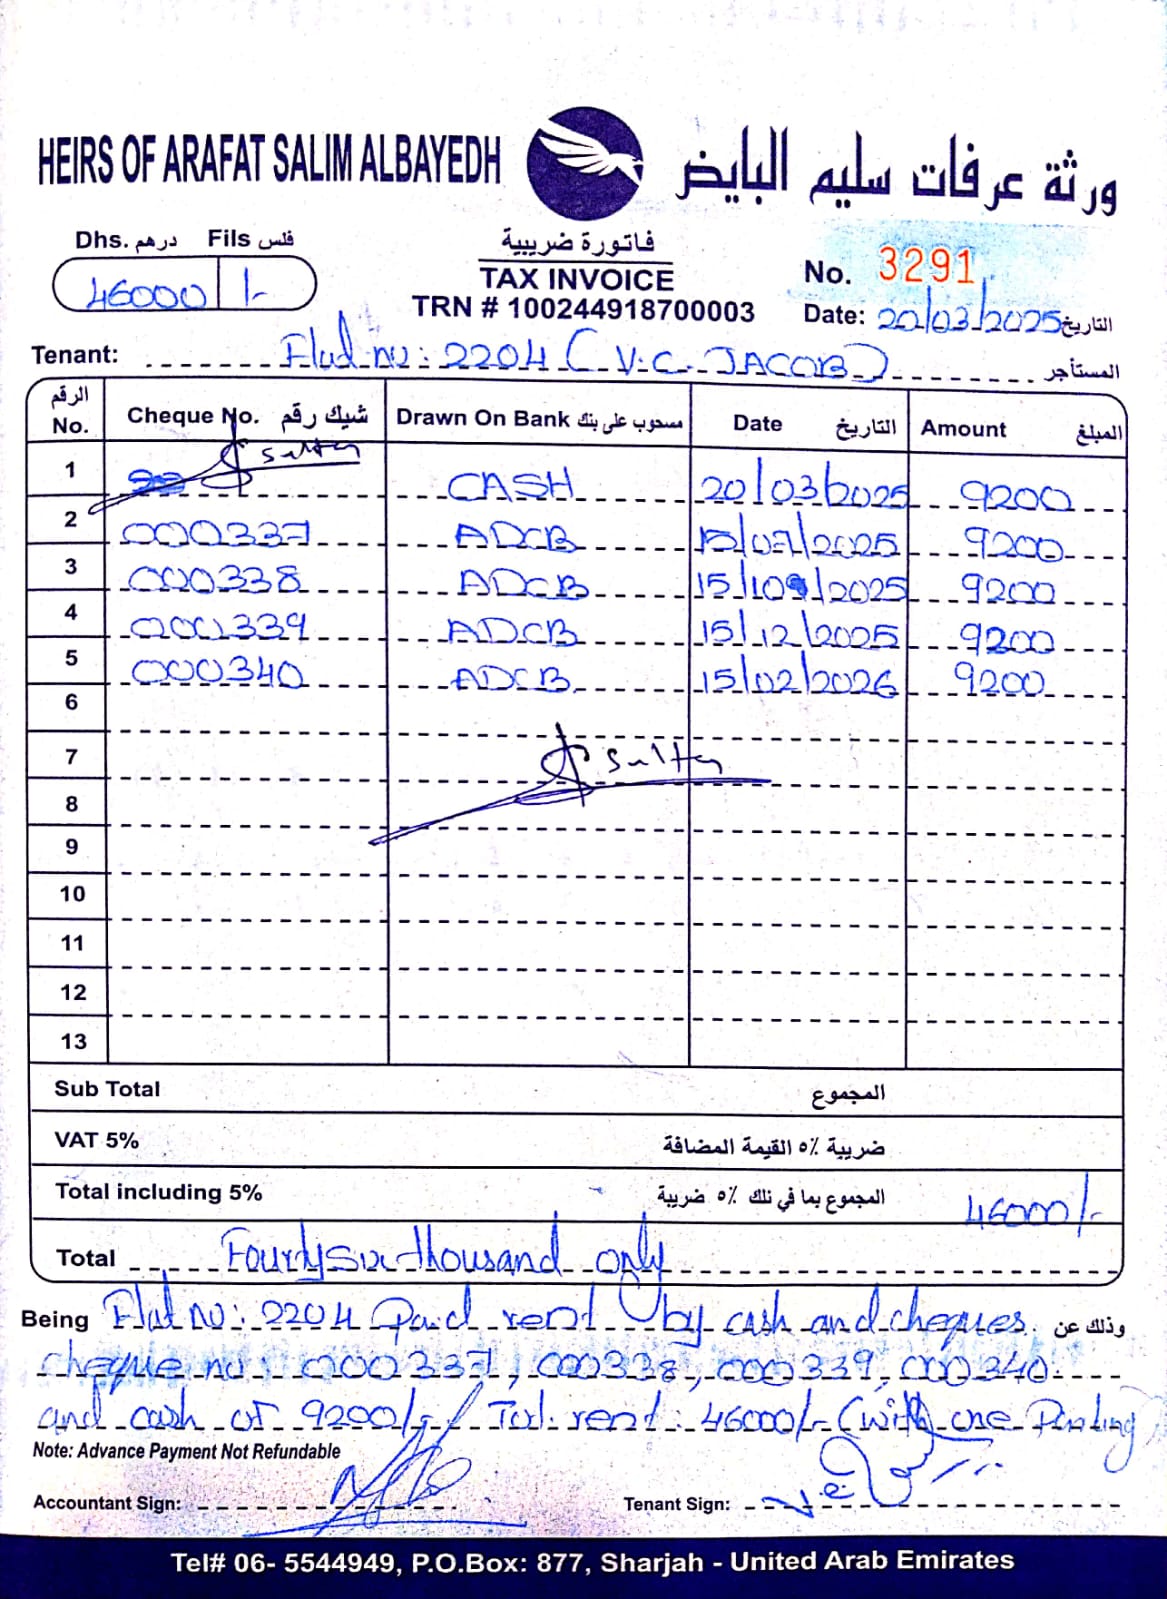 HEIRS OF ARAFAT SALIM ALBAYEDH
ورثة عرفات سليم البايض
Dhs. درهم Fils فلس
46000 /-
فاتورة ضريبية
TAX INVOICE
TRN # 100244918700003
No. 3291
Date: 20/03/2025 التاريخ
Tenant: Flat no: 2204 (V.C. JACOB) المستأجر
الرقم No. Cheque No. شيك رقم Drawn On Bank مسحوب على بنك Date التاريخ Amount المبلغ
1 CASH 20/03/2025 9200
2 000337 ADCB 15/07/2025 9200
3 000338 ADCB 15/109/2025 9200
4 000339 ADCB 15/12/2025 9200
5 000340 ADCB 15/02/2026 9200
6
7
8
9
10
11
12
13
Sub Total المجموع
VAT 5% ضريبة ٥٪ القيمة المضافة
Total including 5% المجموع بما في ذلك ٥٪ ضريبة 46000/-
Total Fourtysix thousand only
Being Flat no: 2204 Paid rent by cash and cheques وذلك عن
cheque no: 000337, 000338, 000339, 000340
and cash of 9200/- Tot. rent: 46000/- (with one Pending)
Note: Advance Payment Not Refundable
Accountant Sign: Tenant Sign:
Tel# 06- 5544949, P.O.Box: 877, Sharjah - United Arab Emirates